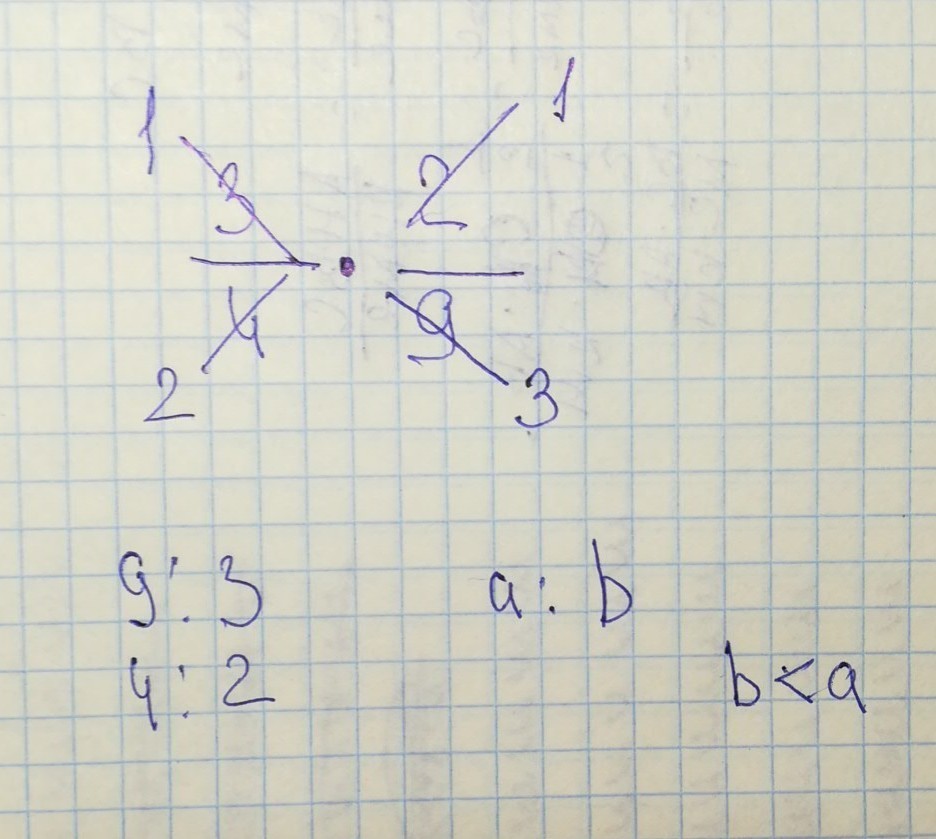 1 1
3 2
— • —
4 9
2 3
9 : 3 a : b
4 : 2 b < a